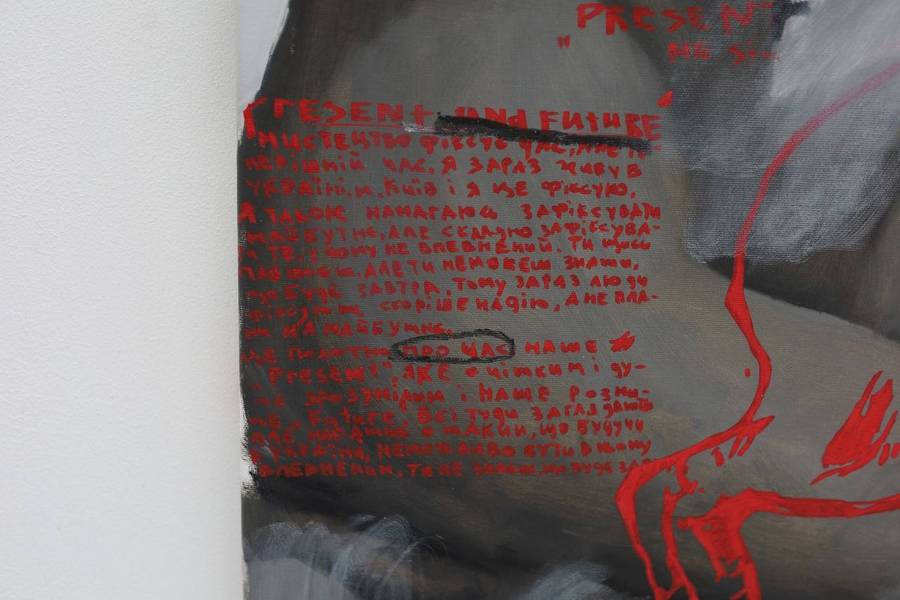 "PRESENT
"
PRESENT AND FUTURE
"МИСТЕЦТВО ФІКСУЄ ЧАС,
ПЕРІШНІЙ ЧАС. Я ЗАРАЗ ЖИВУ В
УКРАЇНІ, м. КИЇВ І Я ЦЕ ФІКСУЮ,
А ТАКОЖ НАМАГАЮСЬ ЗАФІКСУВАТИ
МАЙБУТНЄ, АЛЕ СКЛАДНО ЗАФІКСУВА-
ТИ ТЕ, У ЧОМУ НЕ ВПЕВНЕНИЙ. ТИ ЩОСЬ
ПЛАНУЄШ, АЛЕ ТИ НЕМОЖЕШ ЗНАТИ,
ЩО БУДЕ ЗАВТРА, ТОМУ ЗАРАЗ ЛЮДИ
ФІКСУЮТЬ СКОРІШЕ НАДІЮ, А НЕ ПЛА-
НИ НА МАЙБУТНЄ.
ЦЕ ПОЛОТНО ПРО ЧАС НАШЕ
"PRESENT", ЯКЕ Є ЧІТКИМ І ДУ-
ЖЕ ЗРОЗУМІЛИМ І НАШЕ РОЗМИ-
ТЕ "FUTURE". ВСІ ТУДИ ЗАГЛЯДАЮТЬ
ТАКИЙ, ЩО БУДУЧИ
В УКРАЇНІ, НЕМОЖЛИВО БУТИ В НЬОМУ
ВПЕВНЕНИМ, ТИ НЕ ЗНАЄШ, ЩО БУДЕ